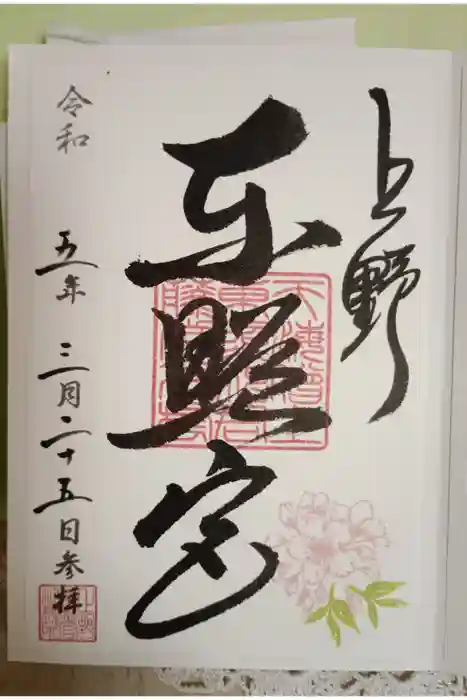 上野
東照宮
令和五年三月二十五日参拝